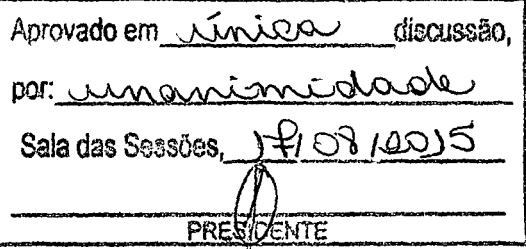 Aprovado em única discussão,
por: unanimidade
Sala das Sessões, 17/08/2015
PRESIDENTE